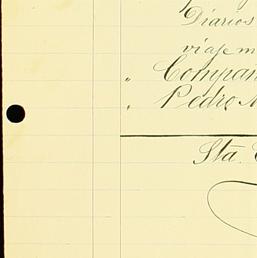 Diarios
viaje m
" Compañ
" Pedro
Sta.